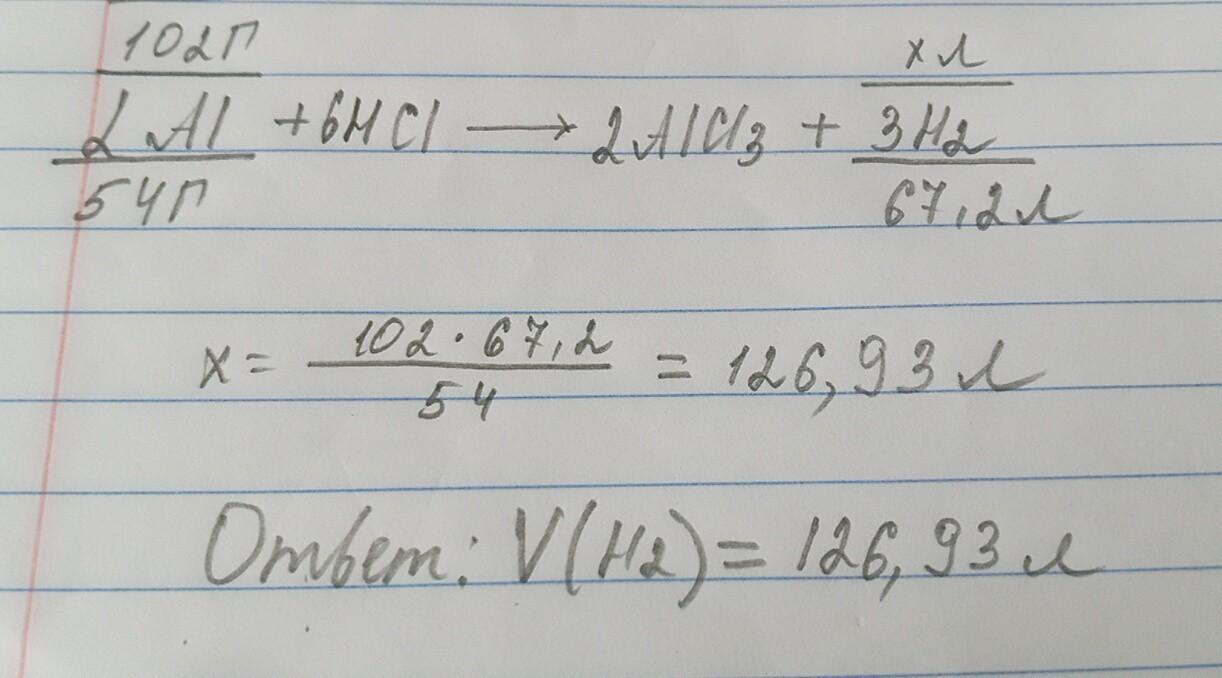 102г xл
2Al + 6HCl → 2AlCl3 + 3H2
54г 67,2л
x = 102 · 67,2 / 54 = 126,93 л
Ответ: V(H2) = 126,93 л